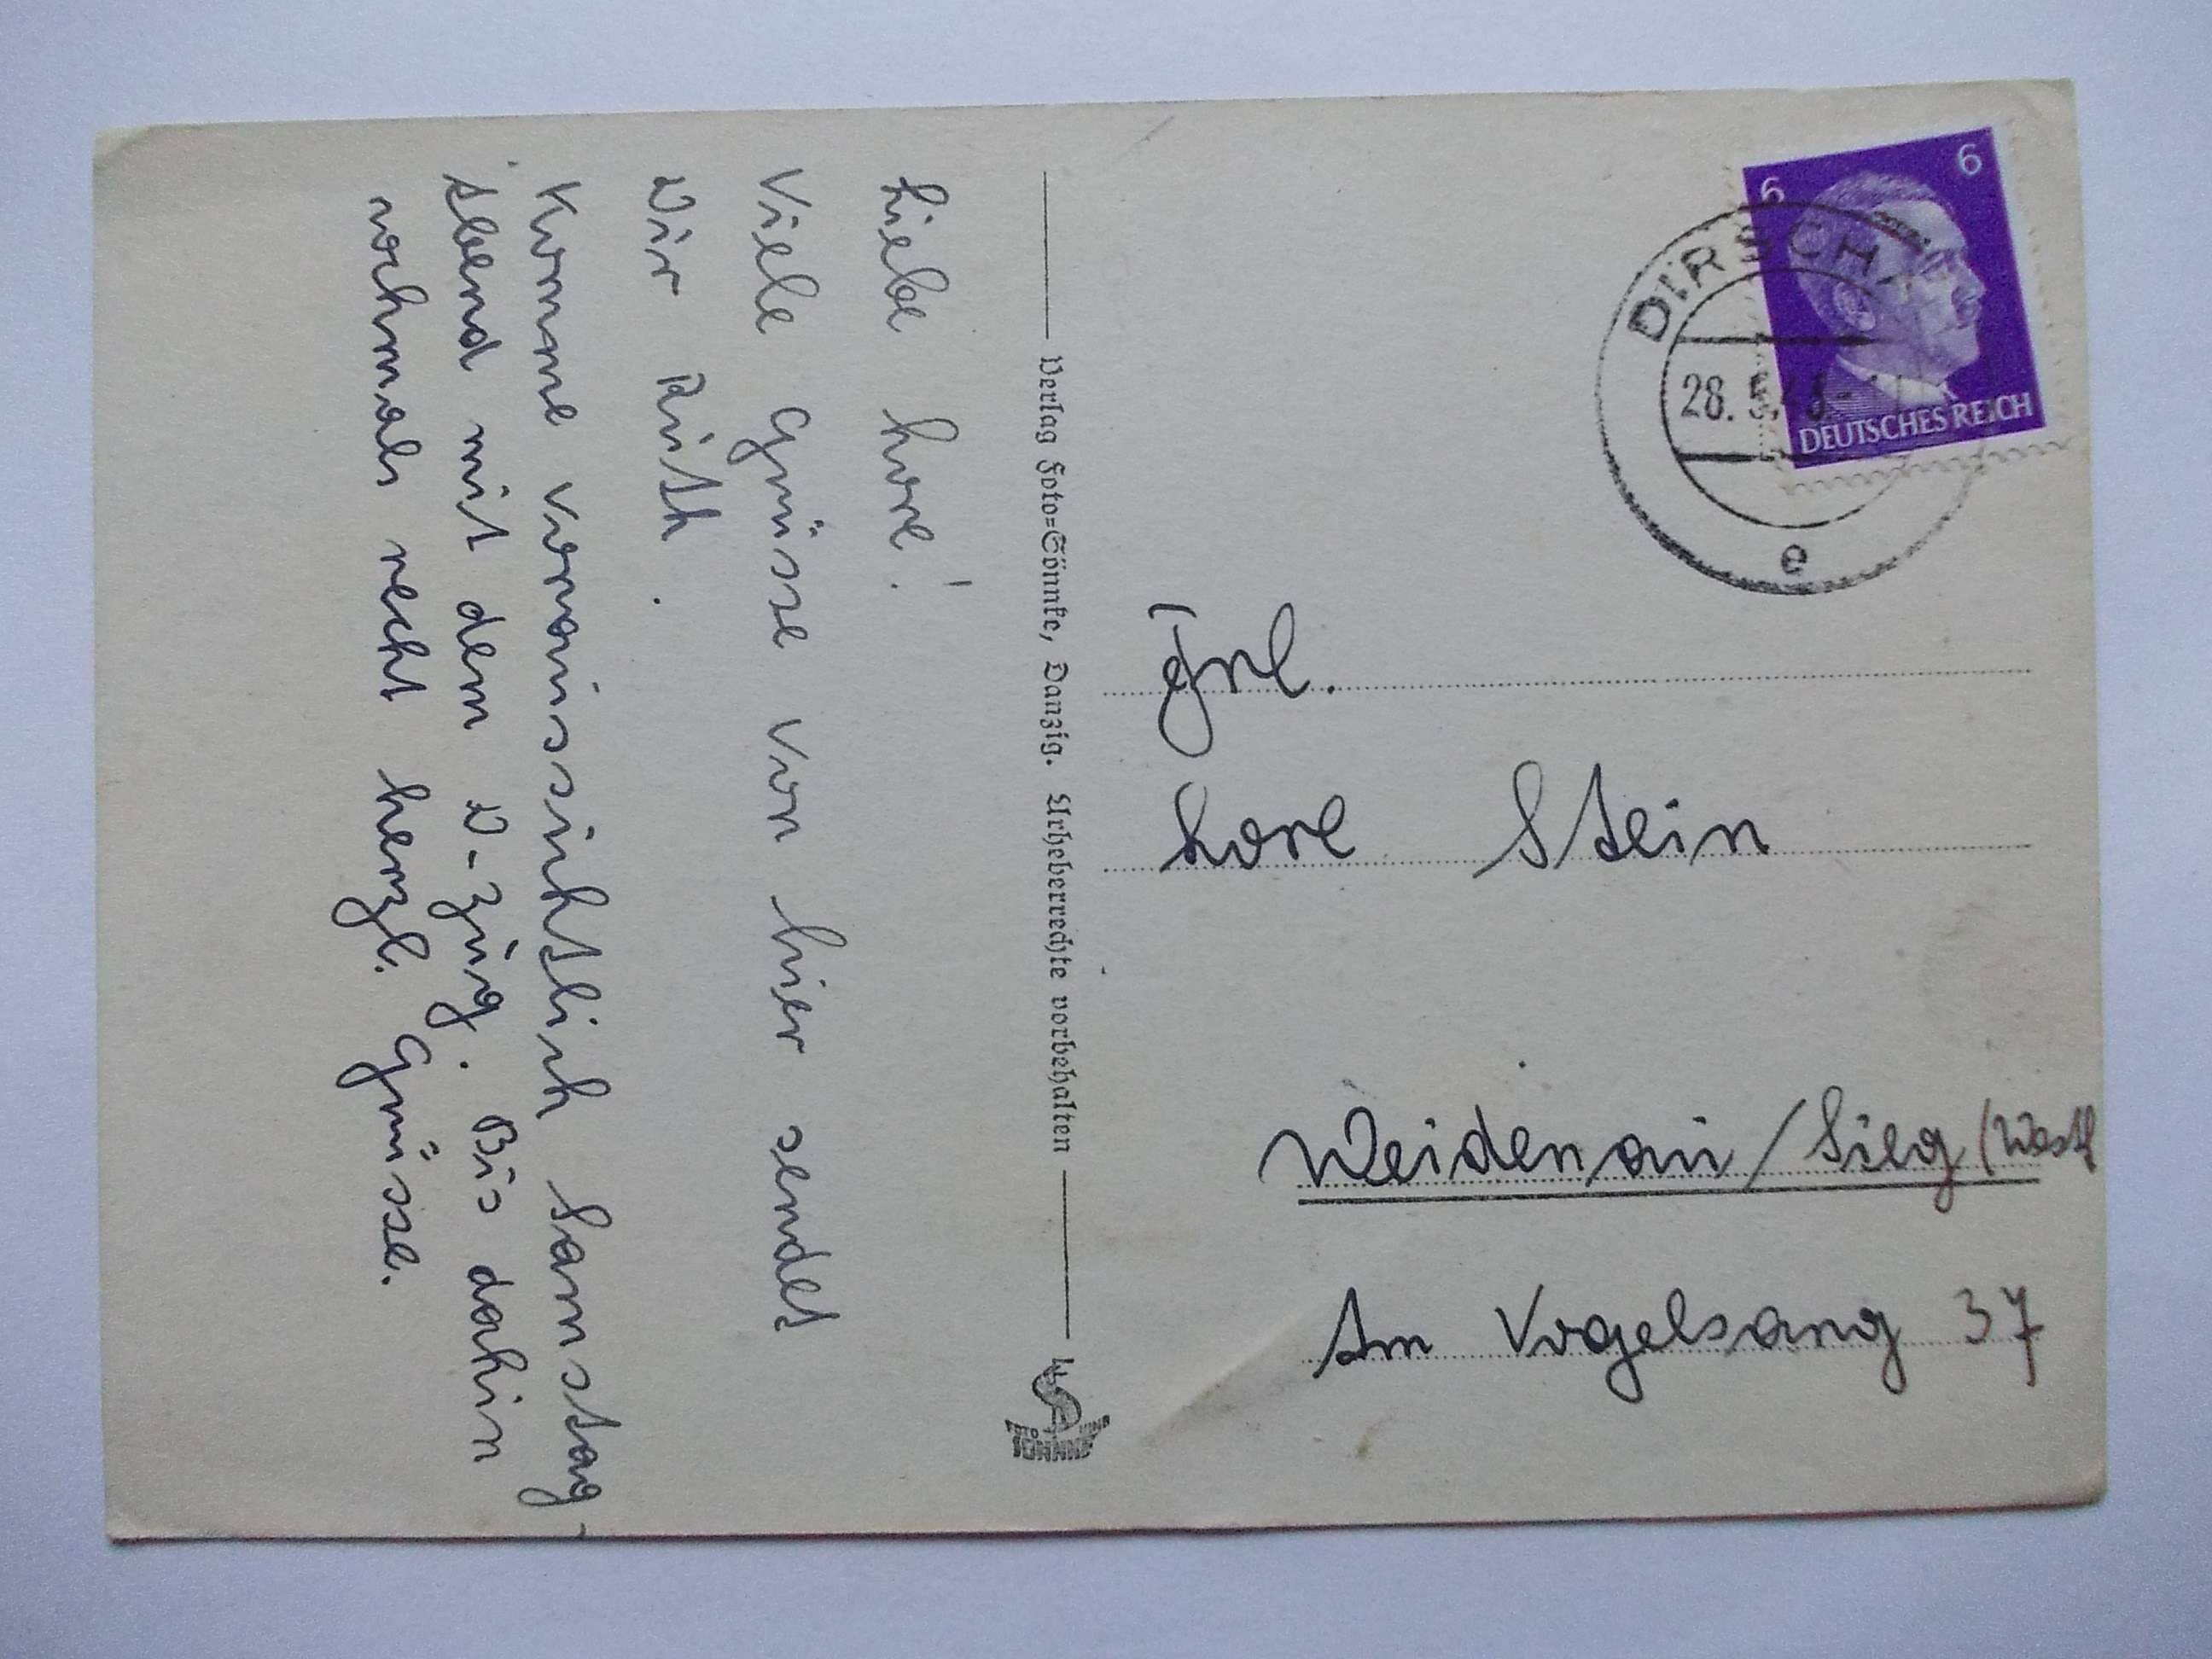 Liebe Lore!
Viele Grüsse von hier sendet
Dir Ruth.
Komme voraussichtlich Samstag-
Abend mit dem D-Zug. Bis dahin
nochmals recht herzl. Grüsse.
Verlag Foto=Sönnke, Danzig. Urheberrechte vorbehalten
SÖNNKE
6
6
DEUTSCHES REICH
DIRSCHA
28. 5. 43-
e
Frl.
Lore Stein
Weidenau/Sieg (Westf
Am Vogelsang 37